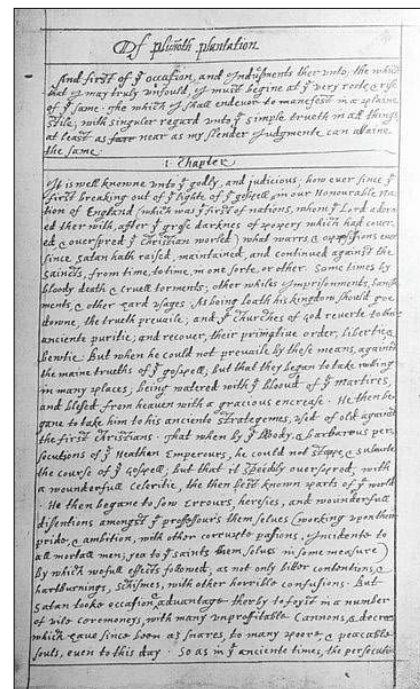 Of plimoth plantation
And first of yᵉ occasion, and Indusments ther unto; the which
that I may truly unfould, I must begine at yᵉ very roote & rise
of yᵉ same. The which I shall endevor to manefest in a plaine
stile; with singuler regard unto yᵉ simple trueth in all things,
at least as far near as my slender Judgmente can attaine
the same.
1. Chapter
It is well knowne unto yᵉ godly, and judicious; how ever since yᵉ
first breaking out of yᵉ lighte of yᵉ gospell, in our Honourable na-
tion of England (which was yᵉ first of nations, whom yᵉ Lord adorn-
ed ther with, after yᵉ grose darknes of popery which had cover-
ed & overspred yᵉ Christian world) what warrs, & opposissions ever
since Satan hath raised, maintained, and continued against the
Saincts, from time, to time, in one sorte, or other. Some times by
bloody death & cruell torments; other whiles Imprisonments, banish-
ments, & other hard usages. As being loath his kingdom should goe
downe, the trueth prevaile; and yᵉ Churches of God reverte to their
anciente puritie; and recover, their primative order, libertie, &
bewtie. But when he could not prevaile by these means, against
the maine trueths of yᵉ gospell, but that they began to take rooting
in many places; being watered with yᵉ blooud of yᵉ martires,
and blesed from heaven with a gracious encrease. He then be-
gane to take him to his anciente strategemes, used of old against
the first Christians. That when by yᵉ bloody, & barbarous per-
secutions of yᵉ Heathen Emperours, he could not stoppe, & subverte
the course of yᵉ gospell; but that it speedily overspred, with
a wounderfull celeritie, the then best known parts of yᵉ world.
He then begane to sow Errours, heresies, and wounderfull
disentions amongst yᵉ professours them selves (working upon their
pride, & ambition, with other corrupte passions, Incidente to
all mortall men; yea to yᵉ saints them selves in some measure)
By which wofull effects followed; as not only bitter contentions, &
hartburnings, schismes, with other horrible confusions. But
Satan tooke occasion & advantage therby to foyst in a number
of vile ceremoneys, with many unproffitable Cannons, & decrees
which have since been as snares, to many poore, & peaceable
souls, even to this day. So as in yᵉ anciente times, the persecuti-